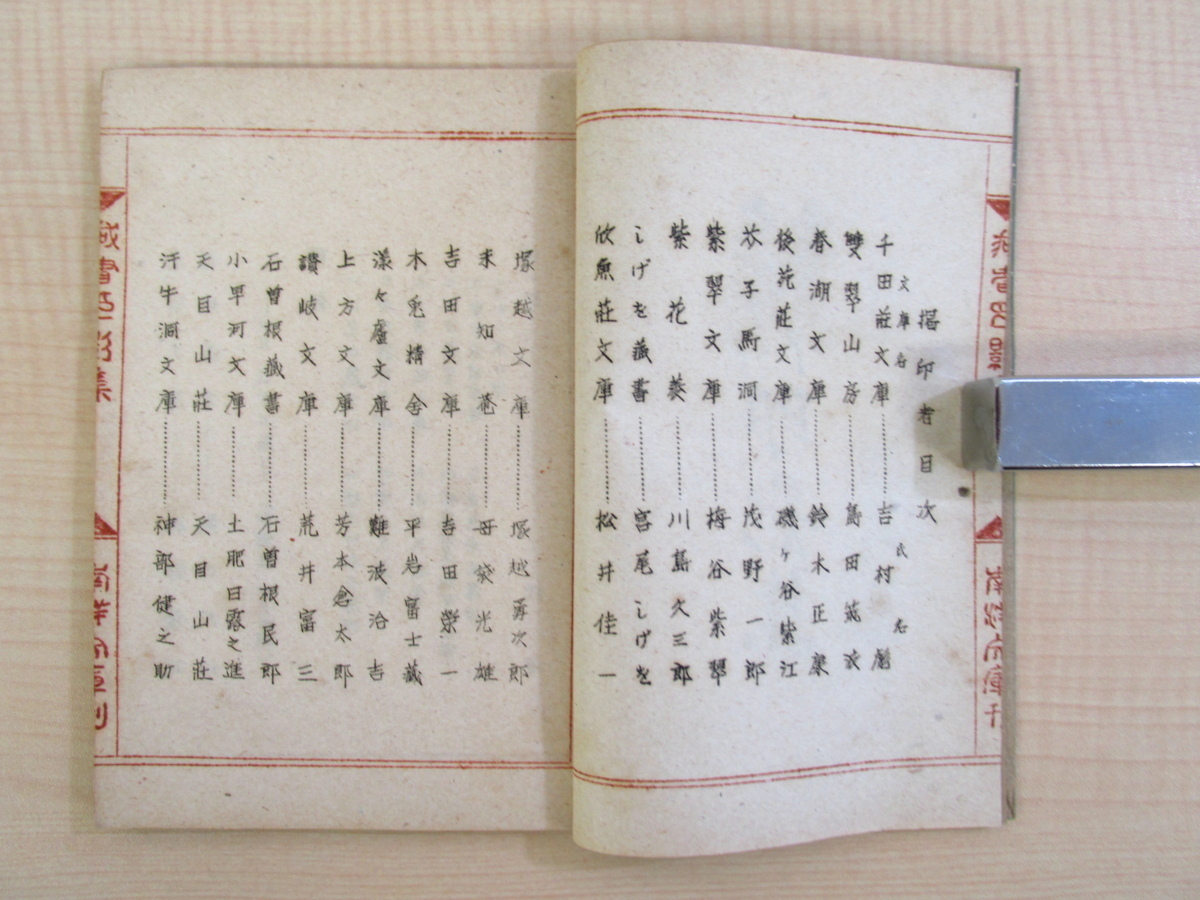 搨印者目次
文庫名 氏名
千田莊文庫………吉村
雙翠山房………島田筑波
春湖文庫………鈴木正康
後苑莊文庫………磯ヶ谷紫江
芥子馬洞………茂野一郎
紫翠文庫………梅谷紫翠
紫花菱………川島久三郎
しげを藏書………宮尾しげを
欣魚莊文庫………松井佳一
塚越文庫………塚越勇次郎
未知菴………母袋光雄
吉田文庫………吉田榮一
木兎精舎………平岩富士藏
漾々廬文庫………難波治吉
上方文庫………芳本倉太郎
讃岐文庫………荒井富三
石曽根藏書………石曽根民郎
小早河文庫………土肥日露之進
天目山莊………天目山莊
汗牛洞文庫………神部健之助
藏書印影集
南洋文庫刊